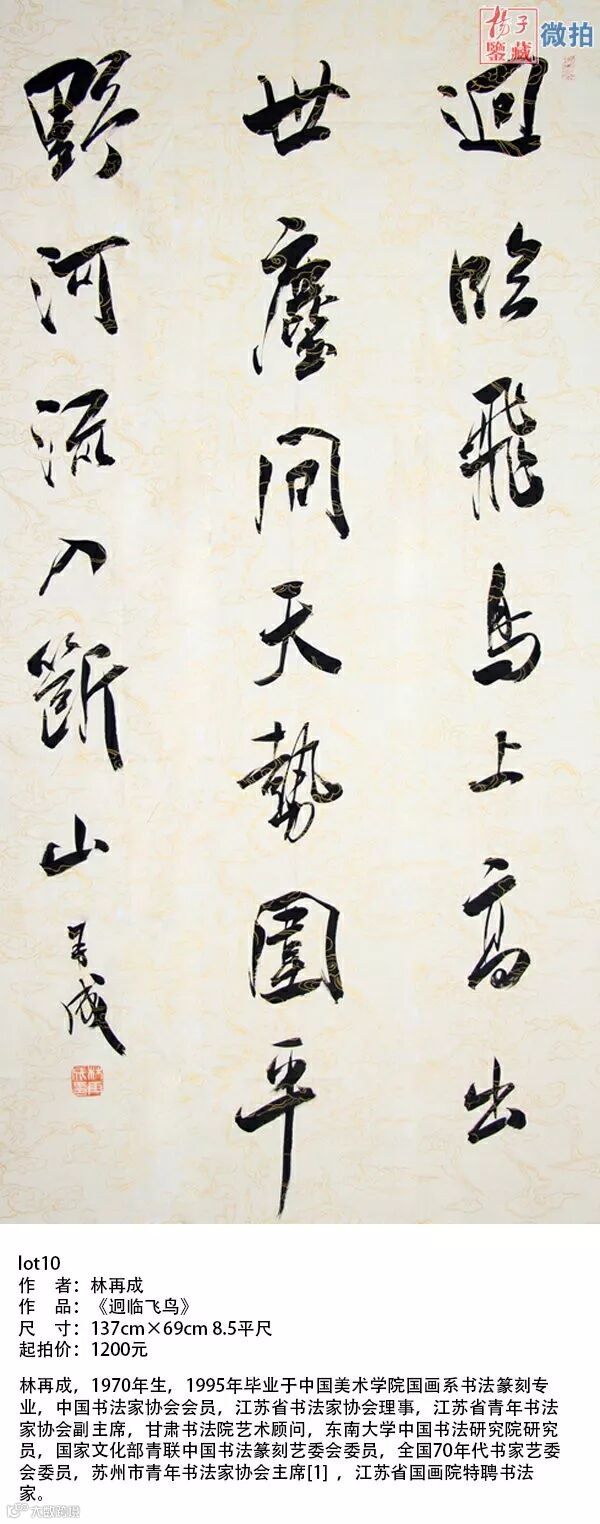 揚子鑒藏 微拍
迥臨飛鳥上高出
世塵間天勢圍平
野河流入斷山
再成
lot10
作 者：林再成
作 品：《迥临飞鸟》
尺 寸：137cm×69cm 8.5平尺
起拍价：1200元
林再成，1970年生，1995年毕业于中国美术学院国画系书法篆刻专
业，中国书法家协会会员，江苏省书法家协会理事，江苏省青年书法
家协会副主席，甘肃书法院艺术顾问，东南大学中国书法研究院研究
员，国家文化部青联中国书法篆刻艺委会委员，全国70年代书家艺委
会委员，苏州市青年书法家协会主席[1] ，江苏省国画院特聘书法
家。
大数跨境